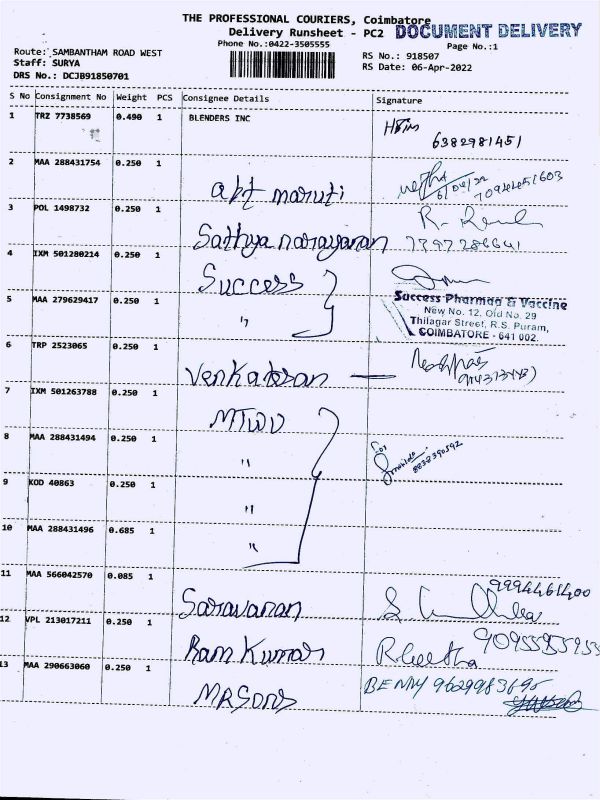 THE PROFESSIONAL COURIERS, Coimbatore
Delivery Runsheet - PC2 DOCUMENT DELIVERY
Phone No.:0422-3505555 Page No.:1
Route: SAMBANTHAM ROAD WEST RS No.: 918507
Staff: SURYA RS Date: 06-Apr-2022
DRS No.: DCJB91850701
S No Consignment No Weight PCS Consignee Details Signature
1 TRZ 7738569 0.490 1 BLENDERS INC
6382981451
2 MAA 288431754 0.250 1
apt maruti
3 POL 1498732 0.250 1
Sathya narayanan
4 IXM 501280214 0.250 1
Success
Success Pharmaa & Vaccine
5 MAA 279629417 0.250 1 New No. 12, Old No. 29
" Thilagar Street, R.S. Puram,
COIMBATORE - 641 002.
6 TRP 2523065 0.250 1
Venkatesan
7 IXM 501263788 0.250 1
MTWD
8 MAA 288431494 0.250 1
" 8838390592
9 KOD 40863 0.250 1
"
10 MAA 288431496 0.685 1
"
11 MAA 566042570 0.085 1 9994461400
Saravanan
12 VPL 213017211 0.250 1
Ram Kumar R.Geetha
13 MAA 290663060 0.250 1 BENNY
MRSons